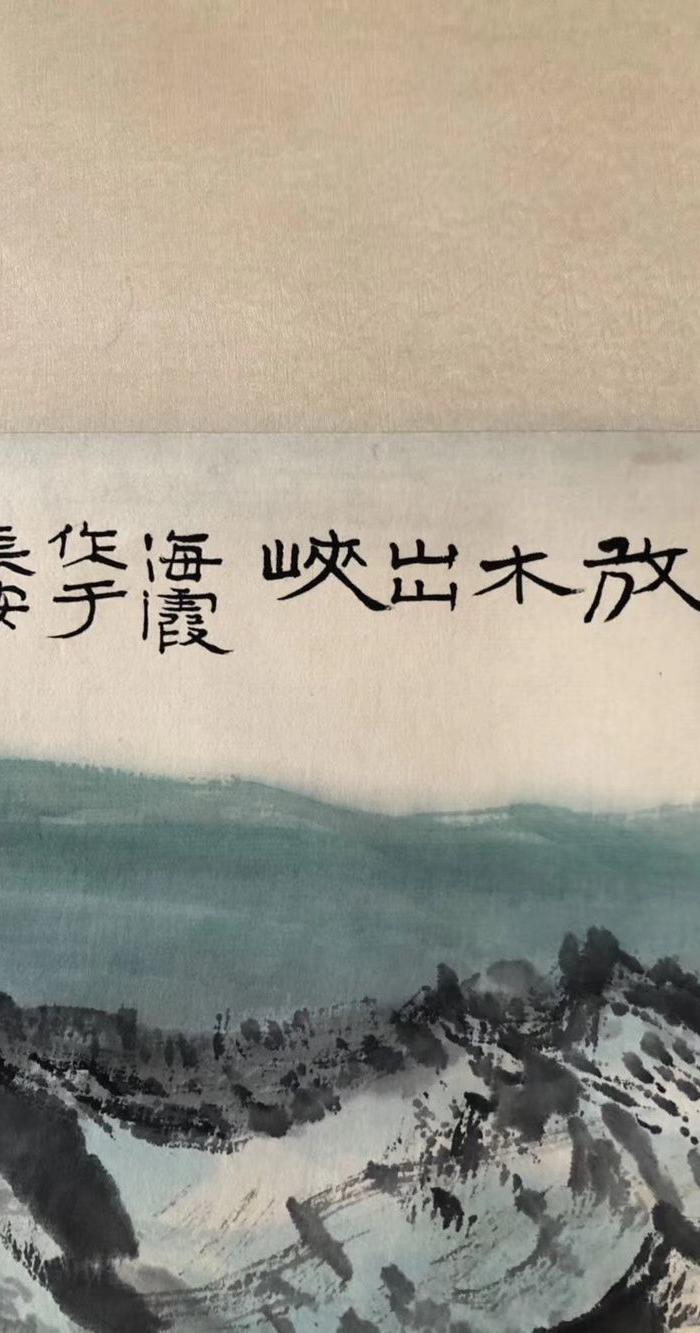 放木出峽
海霞
作于
長安